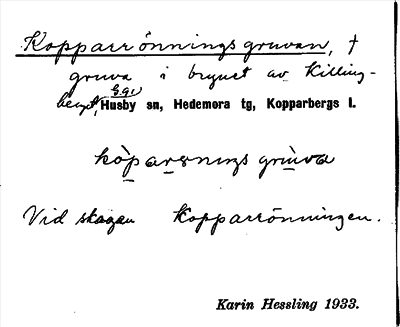 Kopparrönningsgruvan, †
gruva i brynet av Killing-
berget, Husby sn, Hedemora tg, Kopparbergs l.
kòparsnings grùva
Vid skogen Kopparrönningen.
Karin Hessling 1933.